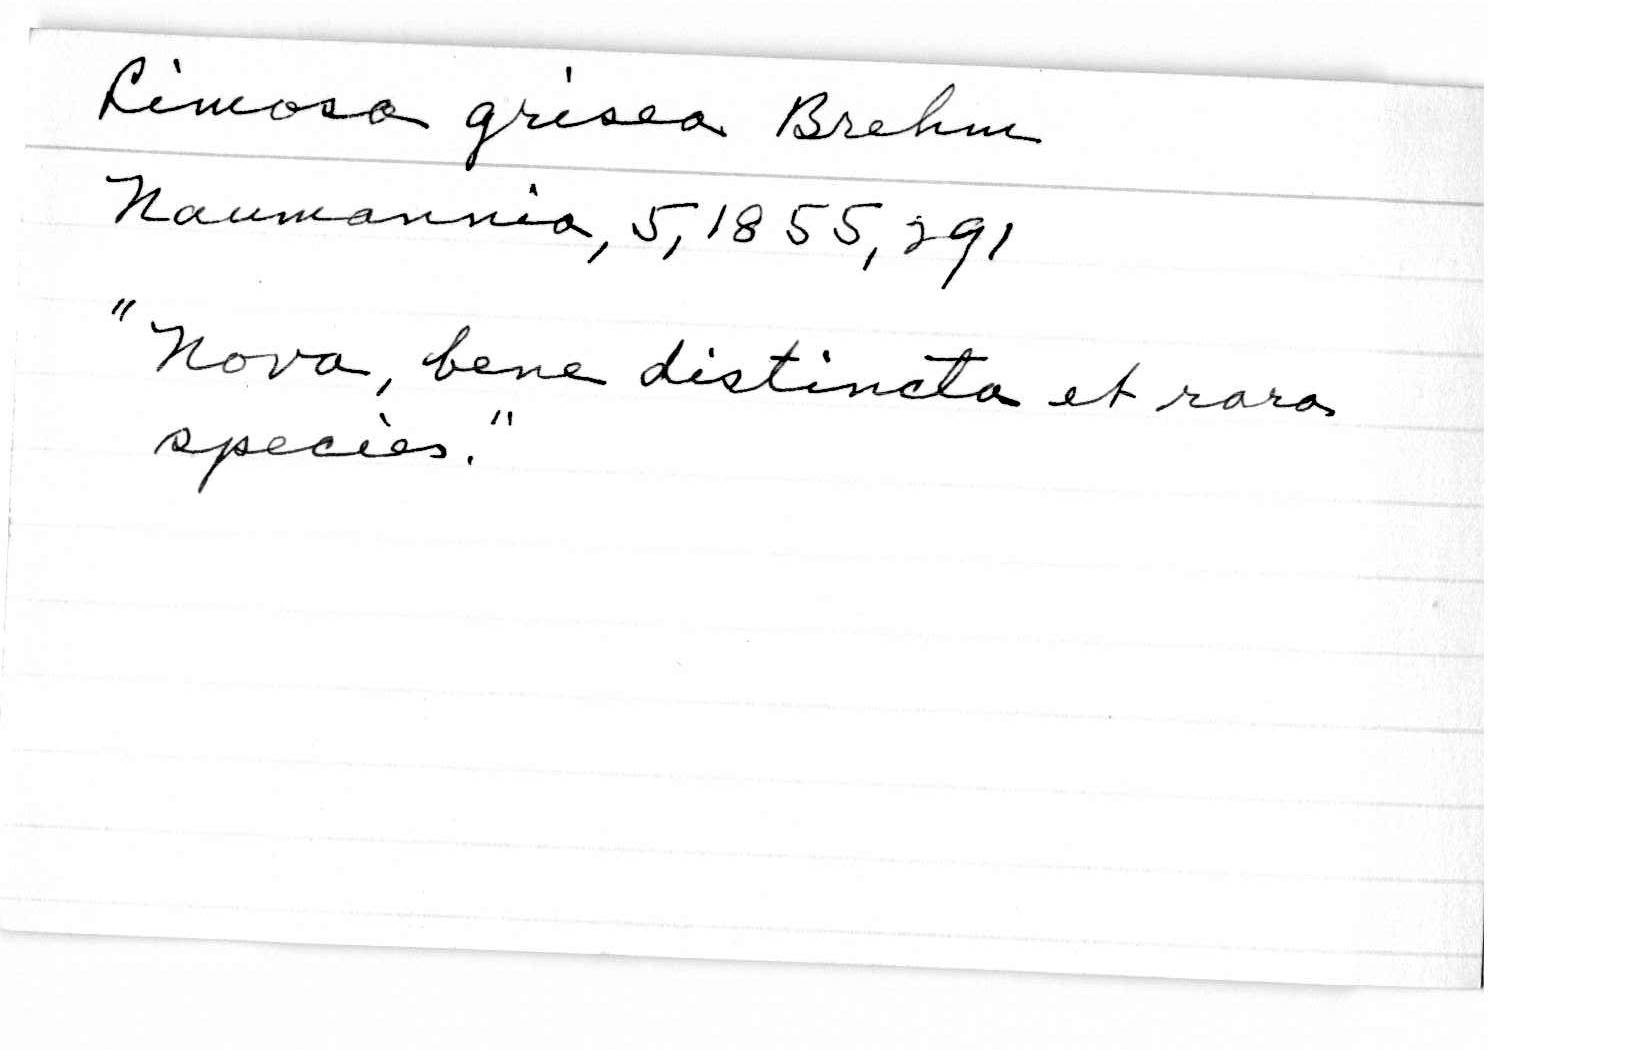 Limosa grisea Brehm
Naumannia, 5, 1855, 291
"Nova, bene distincta et rara
species."